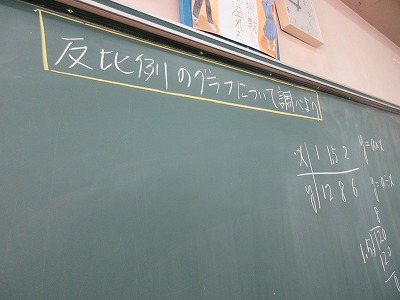 反比例のグラフについて調べよう
x | 1 1.5 2
y | 12 8 6
y=a×x
y=a÷x
8
1.5)120
120
0